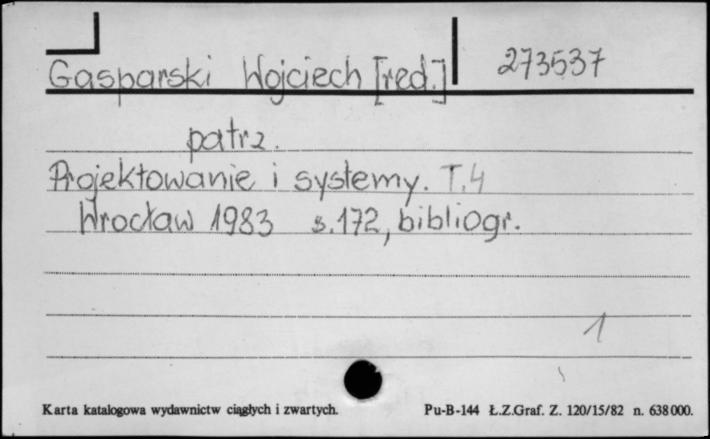 Gasparski Wojciech [red.] 273537
patrz.
Projektowanie i systemy. T.4
Wrocław 1983 s.172, bibliogr.
1
Karta katalogowa wydawnictw ciągłych i zwartych. Pu-B-144 Ł.Z.Graf. Z. 120/15/82 n. 638000.